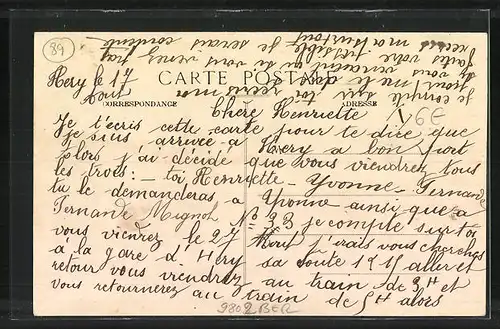 89
Héry le 17
Août
CARTE POSTALE
CORRESPONDANCE
ADRESSE
V 6E
Chère Henriette
Je t'écris cette carte pour te dire que
je suis arrivée à Héry a bon port
alors j'ai décidé que vous viendrez tous
les trois : — toi Henriette — Yvonne — Fernande
tu le demanderas à Yvonne ainsi que a
Fernande Mignot N° 33 je compte sur toi
vous viendrez le 27 Août j'irais vous chercher
à la gare d'Héry sa coute 1.15 aller et
retour vous viendrez au train de 3H et
vous retournerez au train de 5H alors
je compte sur toi
recris moi
si vous venez
faites votre possible
recris moi surtout
je serais contente
9802 BER